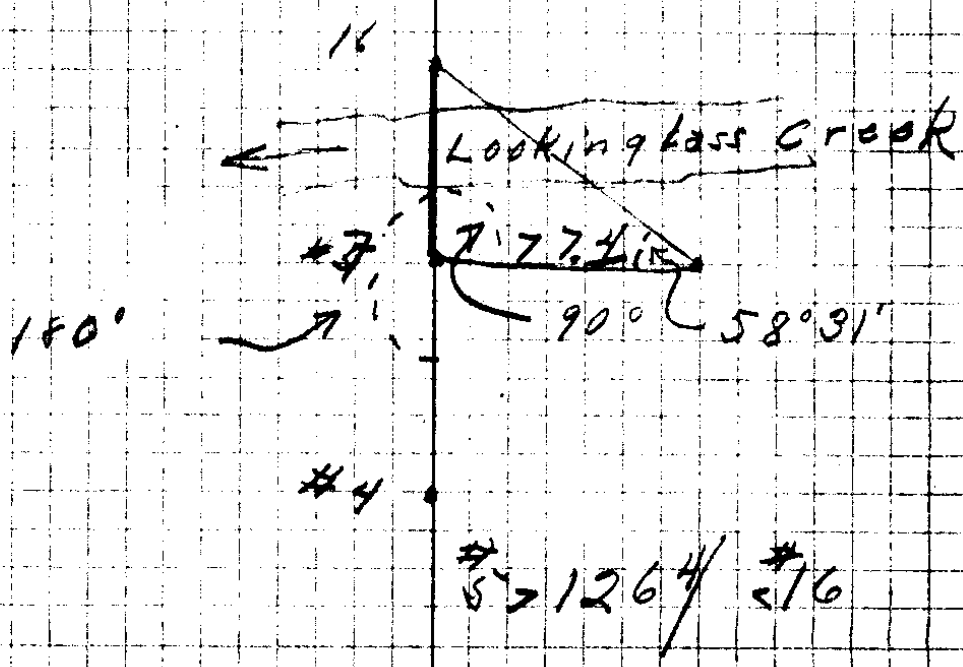 16
Lookinglass Creek
77.4
180° 90° 58°31'
#4
#5 > 126 4/ < #16